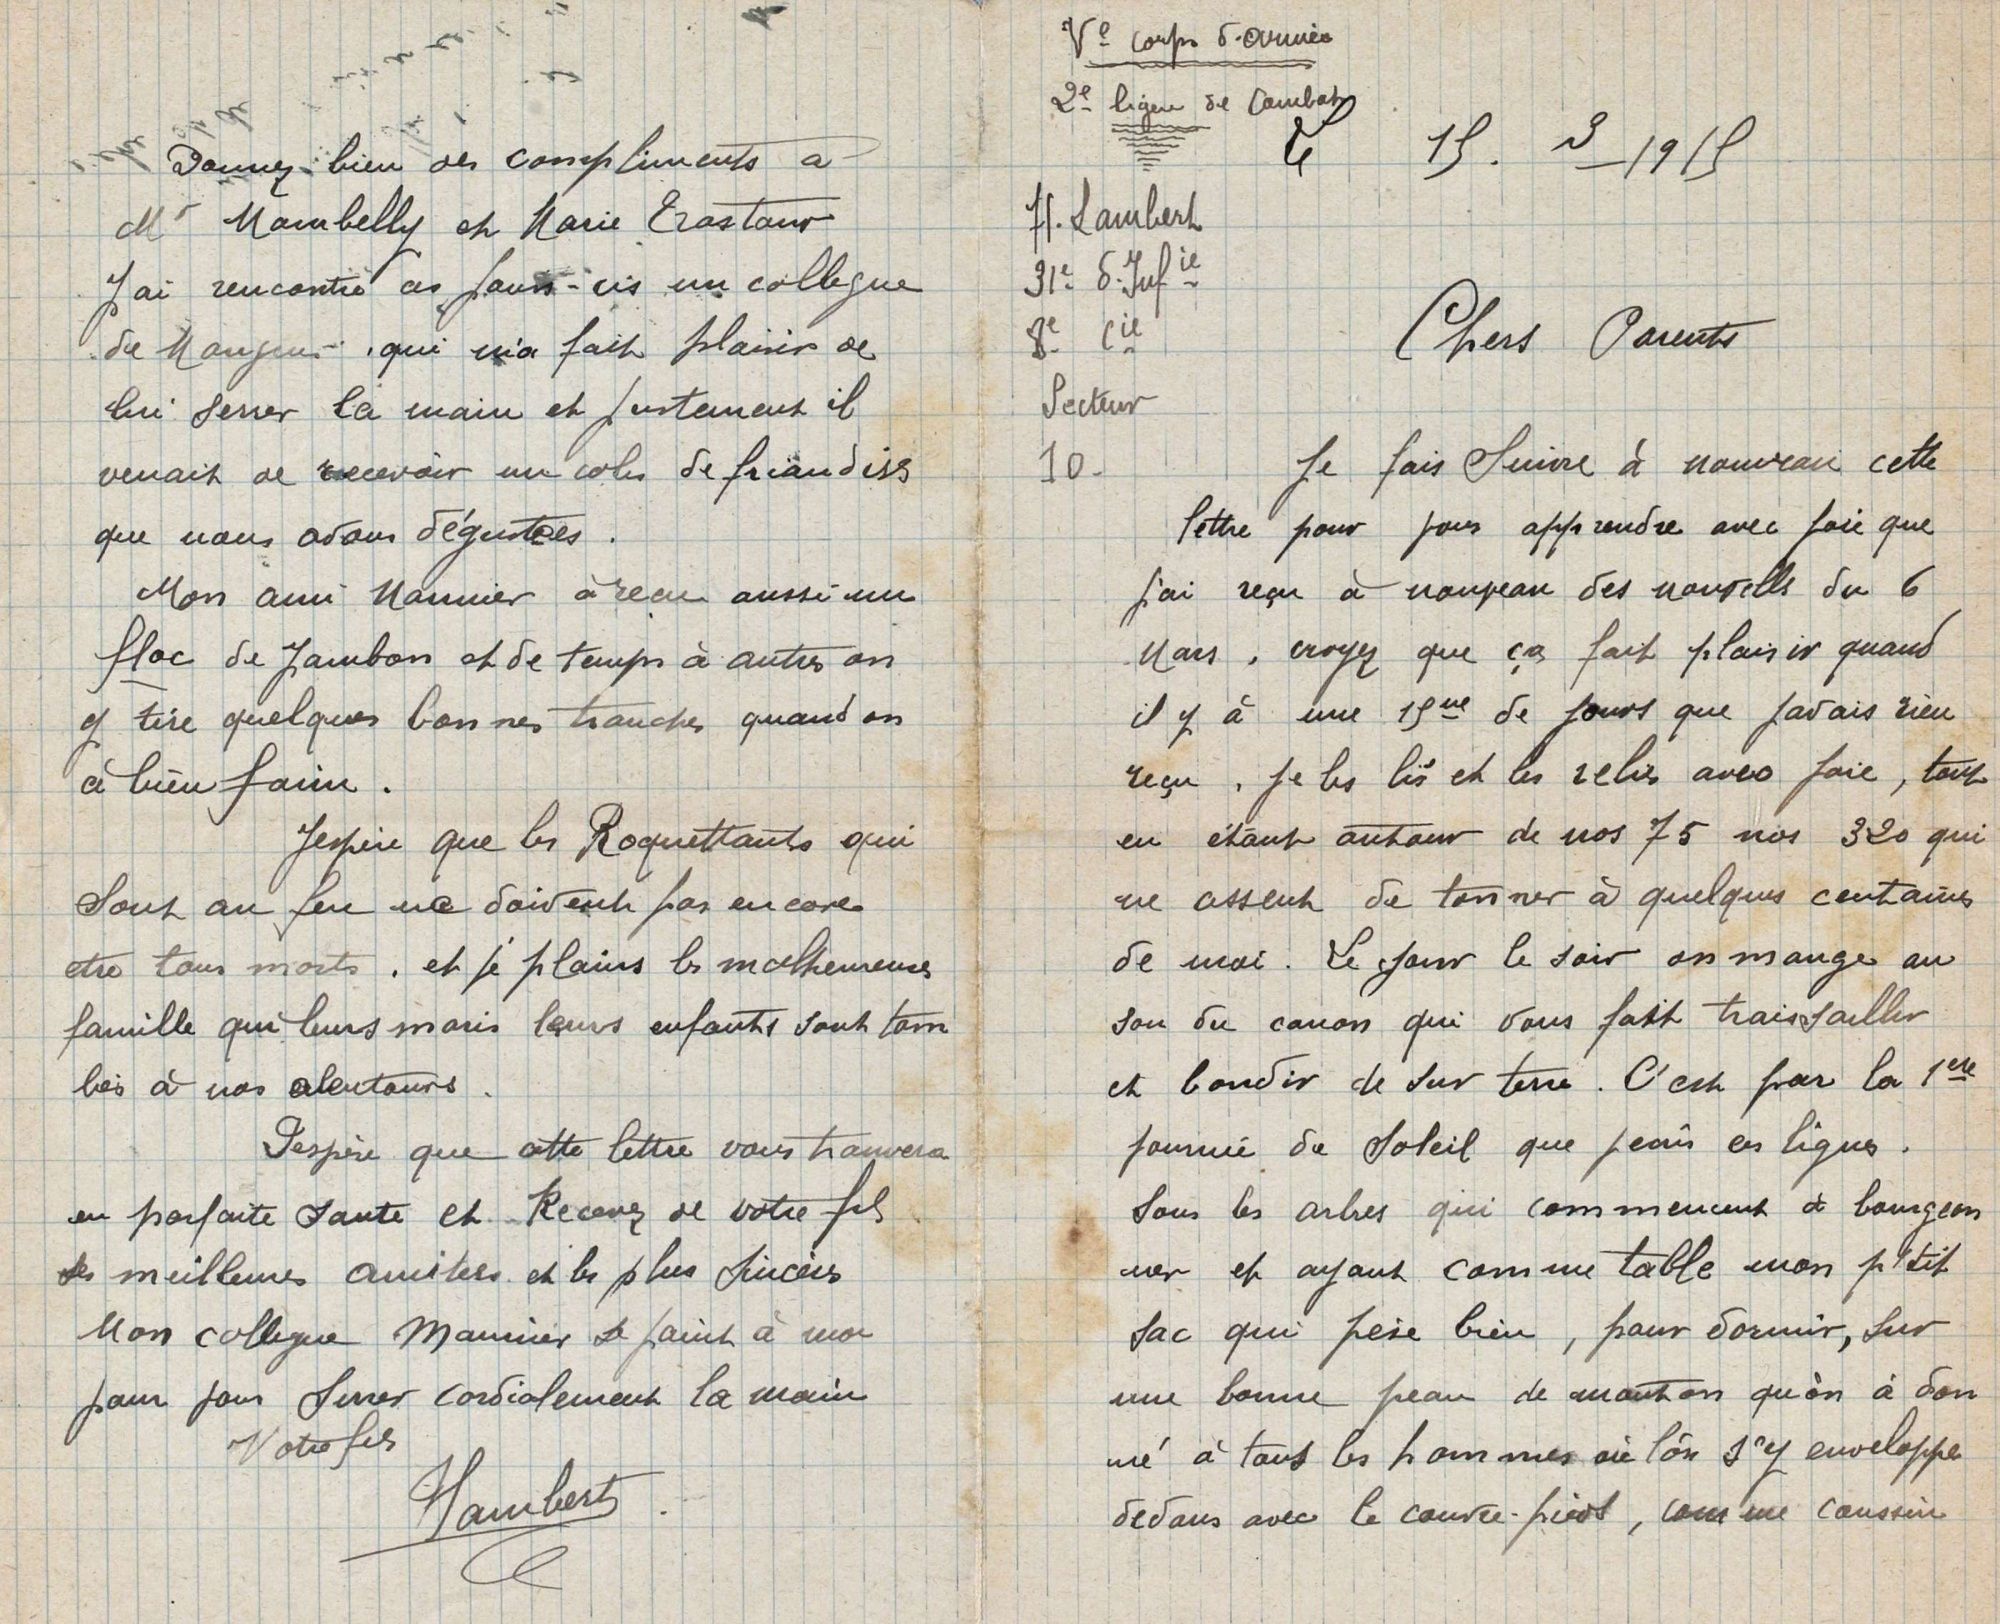 Ve corps d'armée
2e ligne de Combat
Le 15. 3-1915
H. Lambert
31e d'Infie
8e Cie
Secteur
10.
Chers Parents
Je fais Suivre à nouveau cette
lettre pour vous apprendre avec joie que
j'ai reçu à nouveau des nouvells du 6
Mars, croyez que ça fait plaisir quand
il y à une 15ne de jours que javais rien
reçu, je les lis et les relis avec joie, tout
en étant autour de nos 75 nos 320 qui
ne cessent de tonner à quelques centaines
de moi. Le jour le soir on mange au
son du canon qui vous fait traissaillir
et bondir de sur terre. C'est par la 1ere
journée de Soleil que jecris ces lignes.
Sous les arbres qui commencent à bourgeon
ner et ayant comme table mon p'tit
sac qui pèse bien, pour dormir, sur
une bonne peau de mouton qu'on à don
né à tous les hommes où l'on s'y enveloppe
dedans avec le couvre-pied, comme coussin
Donnez bien des compliments a
Mr Mambelly et Marie
J'ai rencontré ces jours-cis un collegue
de qui m'a fait plaisir de
lui serrer la main et justement il
venait de recevoir un colis de friandises
que nous avons dégustées.
Mon ami Maunier à recu aussi un
floc de Jambon et de temps à autres on
y tire quelques bonnes tranches quand on
à bien faim.
Jespère que les Roquettants qui
sont au feu ne doivent pas encore
etre tous morts, et je plains les malheureuses
famille qui leurs maris leurs enfants sont tom
bés à nos alentours.
J'espère que cette lettre vous trouvera
en parfaite sante et Recevez de votre fils
ses meilleures amities et les plus sincères
Mon collegue Maunier se joint à moi
pour vous serrer cordialement la main
Votre fils
HLambert.